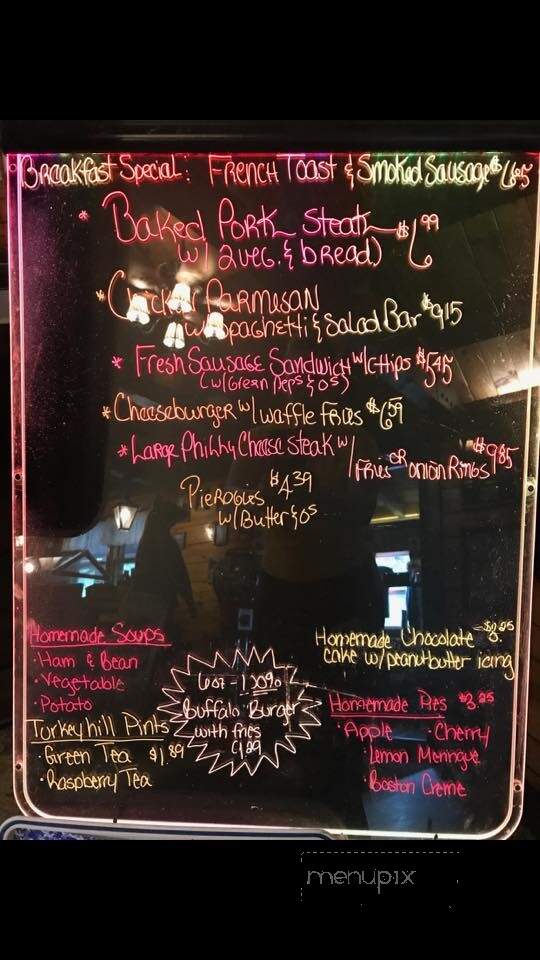 Breakfast Special: French Toast & Smoked Sausage $6.85
* Baked Pork Steak $6.99
w/ 2 veg. & bread)
* Chicken Parmesan
w/ Spaghetti & Salad Bar $9.15
* Fresh Sausage Sandwich w/ Chips $5.45
(w/ Green Peps & O's)
* Cheeseburger w/ Waffle Fries $6.59
* Large Philly Cheese Steak w/
Fries or Onion Rings $9.85
Pierogies $4.39
w/ Butter & O's
Homemade Soups
· Ham & Bean
· Vegetable
· Potato
Turkey hill Pints
· Green Tea $1.89
· Raspberry Tea
6oz - 100%
Buffalo Burger
with fries
Homemade Chocolate
cake w/ peanutbutter icing
Homemade Pies $3.25
· Apple · Cherry
· Lemon Meringue
· Boston Creme
menupix